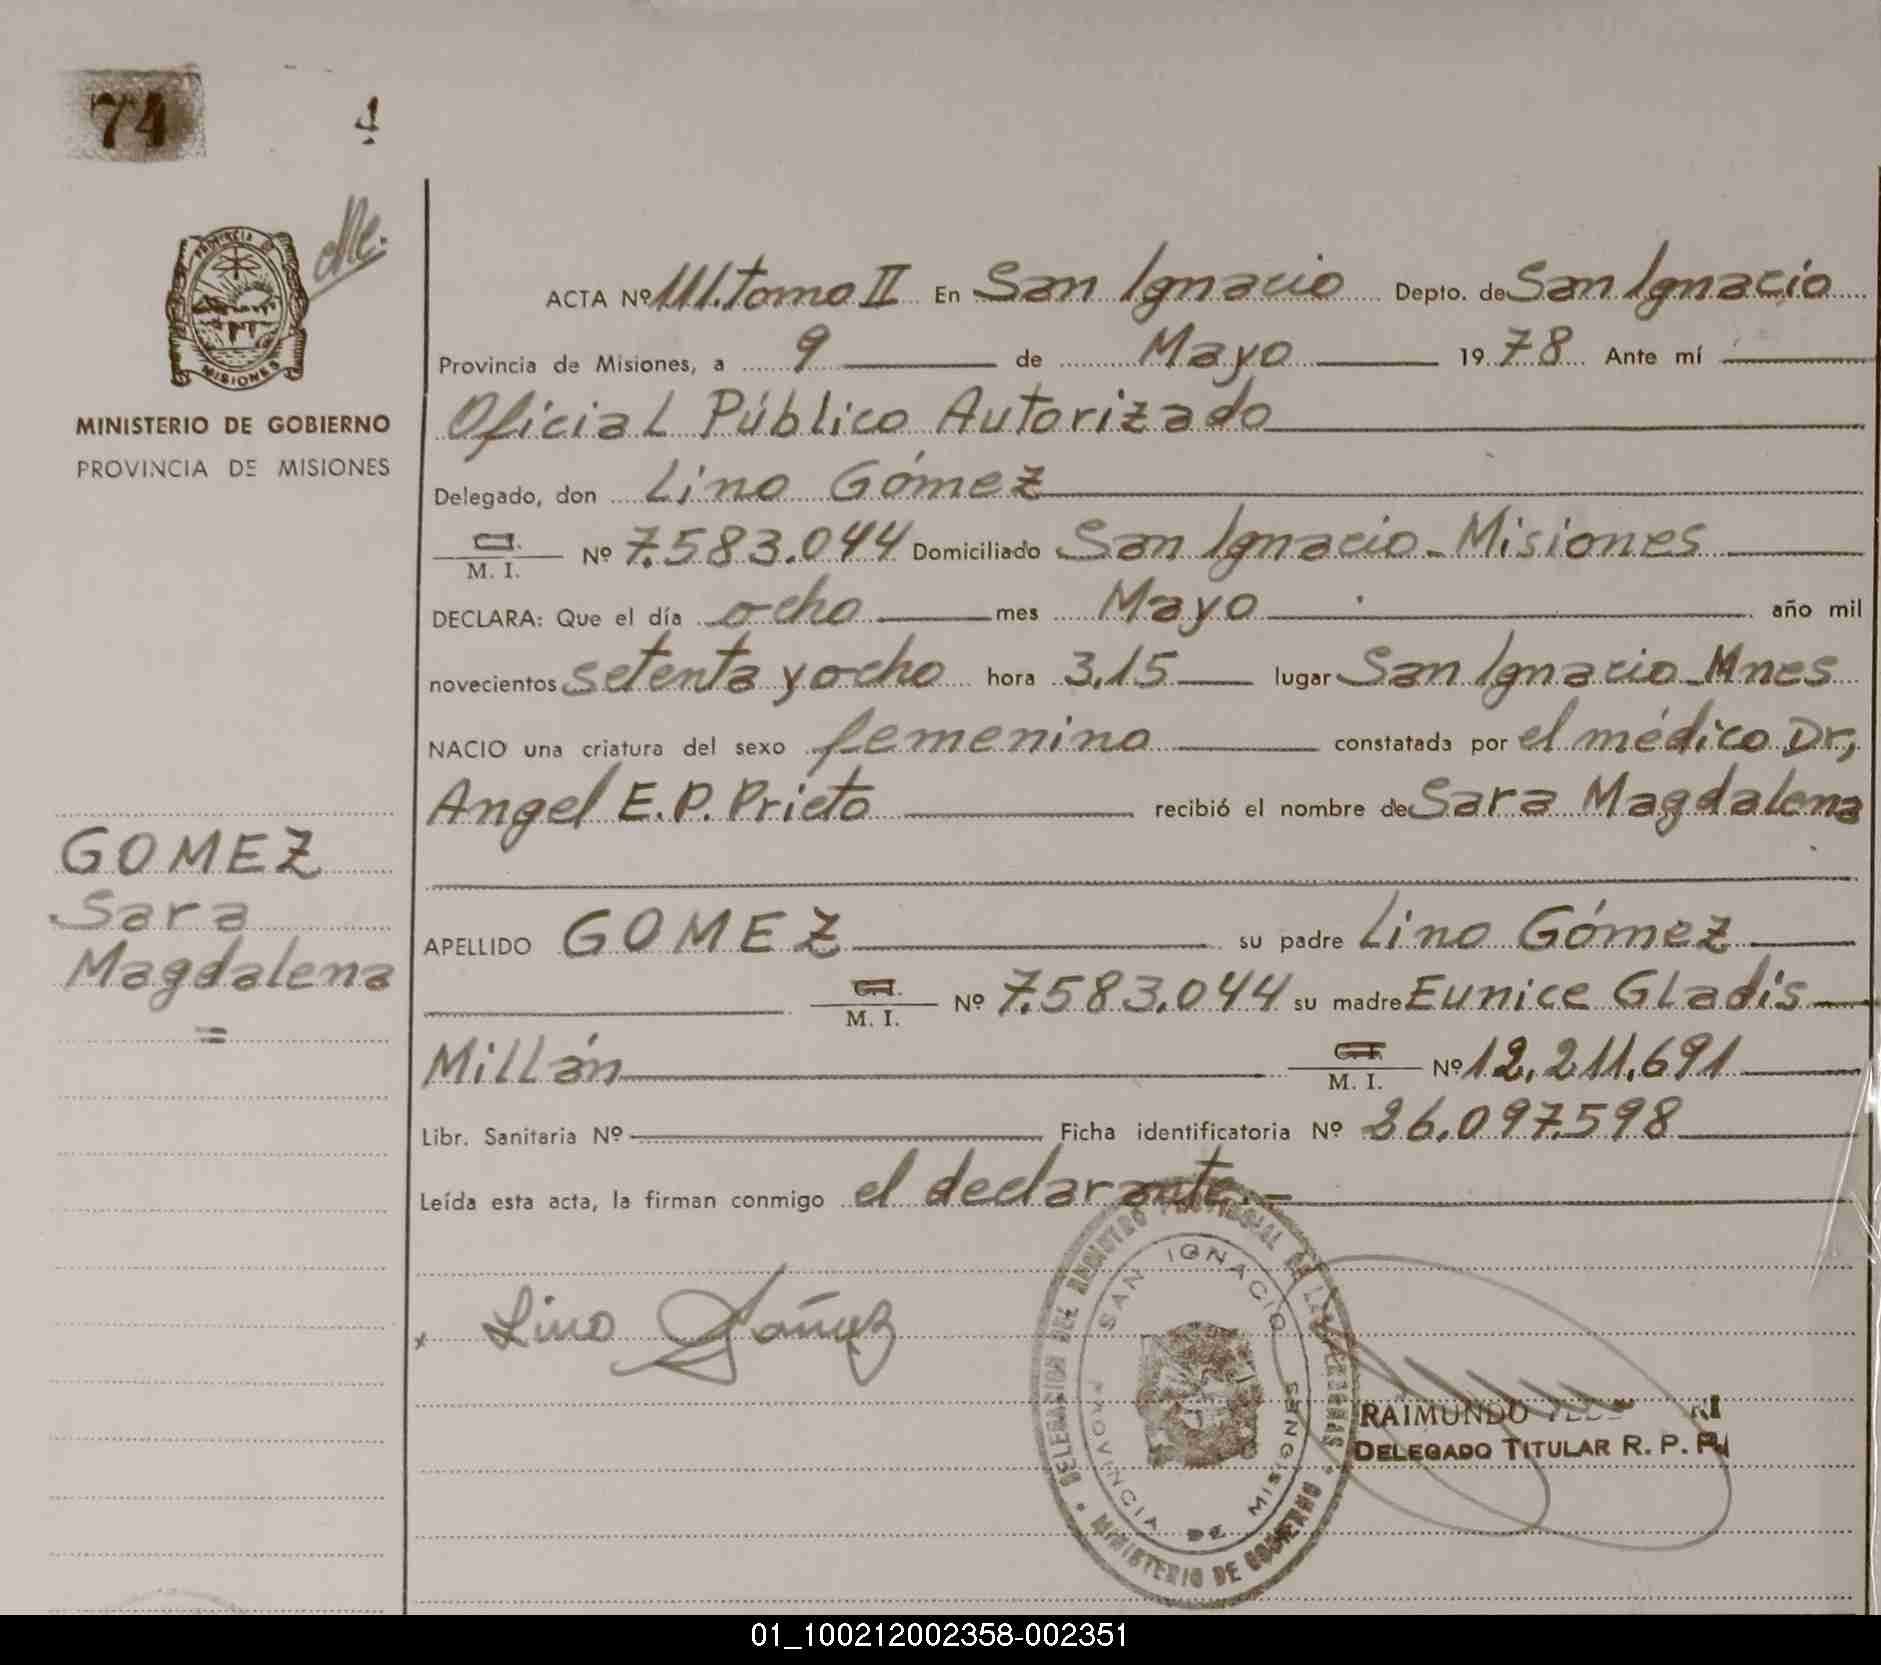 74 4
PROVINCIA DE
MISIONES
MINISTERIO DE GOBIERNO
PROVINCIA DE MISIONES
ACTA Nº 111.tomo II En San Ignacio Depto. de San Ignacio
Provincia de Misiones, a 9 de Mayo 1978 Ante mí
Oficial Público Autorizado
Delegado, don Lino Gómez
M. I. Nº 7.583.044 Domiciliado San Ignacio - Misiones
DECLARA: Que el día ocho mes Mayo año mil
novecientos setenta y ocho hora 3,15 lugar San Ignacio - Mnes
NACIO una criatura del sexo femenino constatada por el médico Dr,
Angel E.P. Prieto recibió el nombre de Sara Magdalena
GOMEZ
Sara
Magdalena
=
APELLIDO GOMEZ su padre Lino Gómez
C.I. M. I. Nº 7.583.044 su madre Eunice Gladis
Millán C.I. M. I. Nº 12.211.691
Libr. Sanitaria Nº Ficha identificatoria Nº 26.097.598
Leída esta acta, la firman conmigo el declarante.-
x Lino
DELEGACION DEL REGISTRO PROVINCIAL DE LAS PERSONAS
SAN IGNACIO
PROVINCIA DE MISIONES
MINISTERIO DE GOBIERNO
RAIMUNDO
DELEGADO TITULAR R. P. P.
01_100212002358-002351